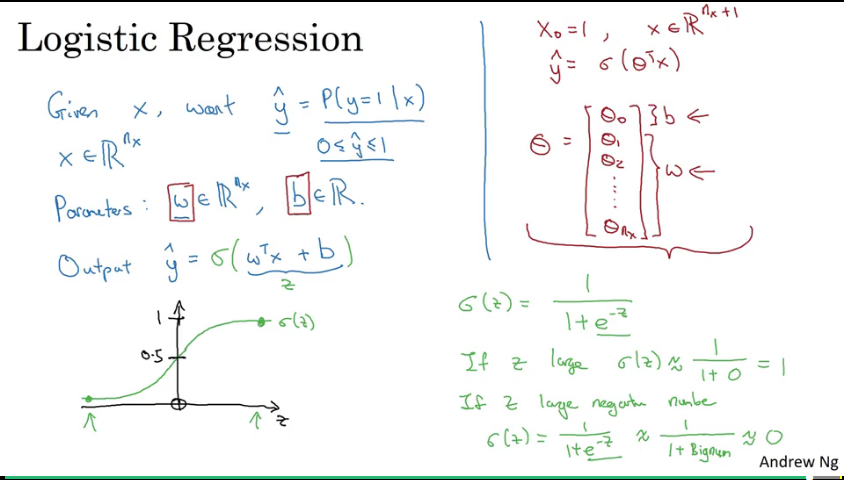 Logistic Regression
Given x, want ŷ = P(y=1|x)
x ∈ ℝⁿˣ
0≤ŷ≤1
Parameters: w ∈ ℝⁿˣ, b ∈ ℝ.
Output ŷ = σ(wᵀx + b)
z
1
0.5
σ(z)
z
x₀=1, x ∈ ℝⁿˣ⁺¹
ŷ = σ(θᵀx)
θ = [θ₀ θ₁ θ₂ ⋮ θₙₓ]
} b ←
} w ←
σ(z) = 1/(1+e⁻ᶻ)
If z large σ(z) ≈ 1/(1+0) = 1
If z large negative number
σ(z) = 1/(1+e⁻ᶻ) ≈ 1/(1+Bignum) ≈ 0
Andrew Ng